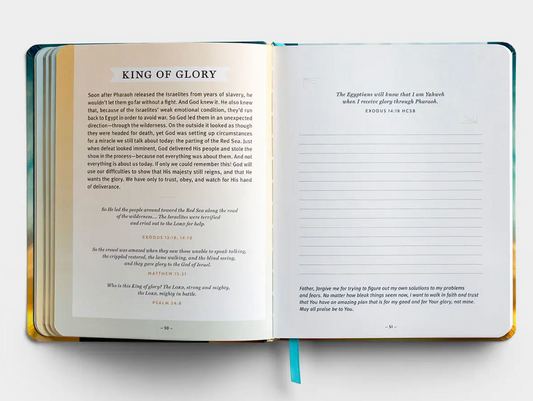 KING OF GLORY
Soon after Pharaoh released the Israelites from years of slavery, he
wouldn't let them go far without a fight. And God knew it. He also knew
that, because of the Israelites' weak emotional condition, they'd run
back to Egypt in order to avoid war. So God led them in an unexpected
direction—through the wilderness. On the outside it looked as though
they were headed for death, yet God was setting up circumstances
for a miracle we still talk about today: the parting of the Red Sea. Just
when defeat looked imminent, God delivered His people and stole the
show in the process—because not everything was about them. And not
everything is about us today. If only we could remember this! God will
use our difficulties to show that His majesty still reigns, and that He
wants the glory. We have only to trust, obey, and watch for His hand
of deliverance.
So He led the people around toward the Red Sea along the road
of the wilderness.... The Israelites were terrified
and cried out to the LORD for help.
EXODUS 13:18, 14:10
So the crowd was amazed when they saw those unable to speak talking,
the crippled restored, the lame walking, and the blind seeing,
and they gave glory to the God of Israel.
MATTHEW 15:31
Who is this King of glory? The LORD, strong and mighty,
the LORD, mighty in battle.
PSALM 24:8
– 50 –
The Egyptians will know that I am Yahweh
when I receive glory through Pharaoh.
EXODUS 14:18 HCSB
Father, forgive me for trying to figure out my own solutions to my problems
and fears. No matter how bleak things seem now, I want to walk in faith and trust
that You have an amazing plan that is for my good and for Your glory, not mine.
May all praise be to You.
– 51 –